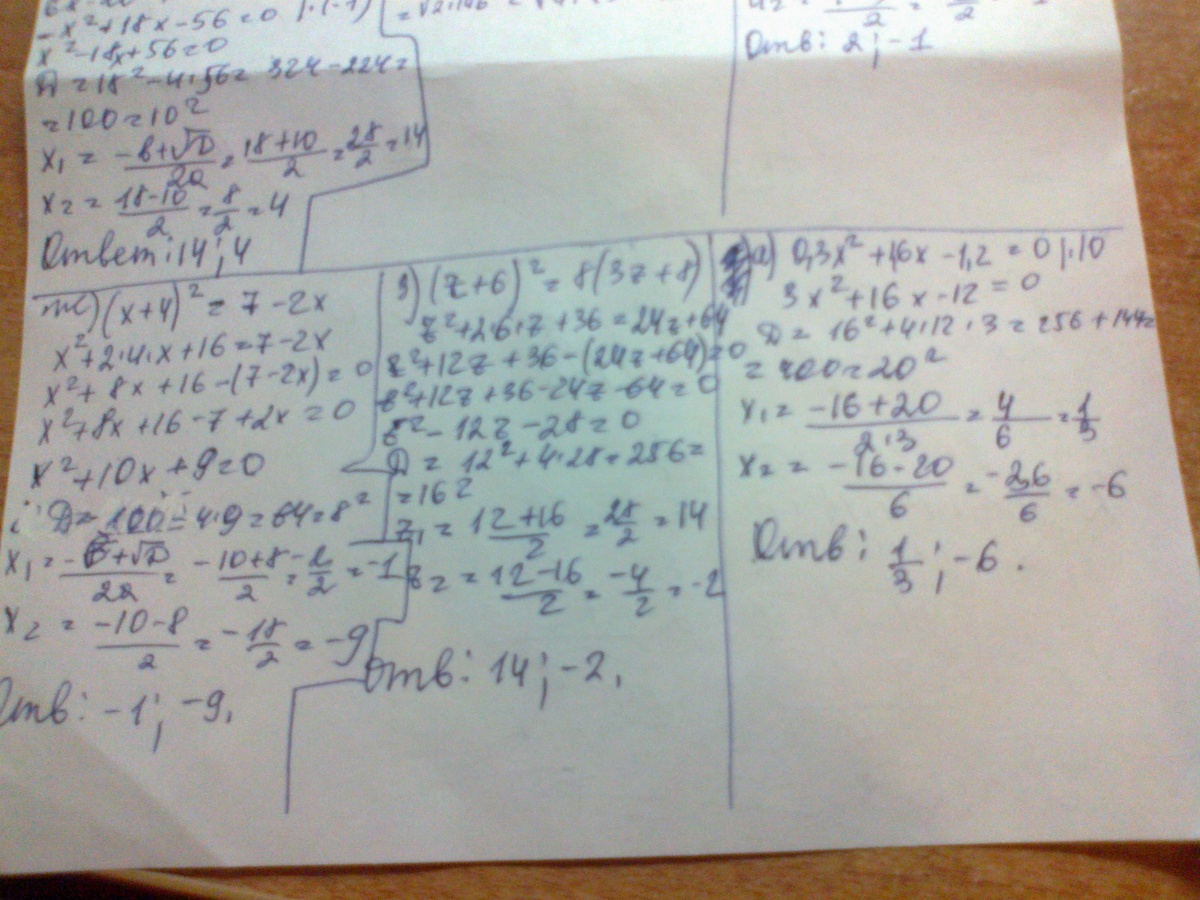 -x²+18x-56=0 |·(-1)
x²-18x+56=0
D=18²-4·56=324-224=
=100=10²
x₁ = (-b+√D)/2a = (18+10)/2 = 28/2 = 14
x₂ = (18-10)/2 = 8/2 = 4
Ответ: 14; 4
Отв: 2; -1
ж) (x+4)² = 7-2x
x²+2·4·x+16=7-2x
x²+8x+16-(7-2x)=0
x²+8x+16-7+2x=0
x²+10x+9=0
D=100-4·9=64=8²
x₁ = (-b+√D)/2a = (-10+8)/2 = -2/2 = -1
x₂ = (-10-8)/2 = -18/2 = -9
Отв: -1; -9.
з) (z+6)² = 8(3z+8)
z²+2·6·z+36=24z+64
z²+12z+36-(24z+64)=0
z²+12z+36-24z-64=0
z²-12z-28=0
D = 12²+4·28=256=
=16²
z₁ = (12+16)/2 = 28/2 = 14
z₂ = (12-16)/2 = -4/2 = -2
Отв: 14; -2.
а) 0,3x²+1,6x-1,2=0 |·10
3x²+16x-12=0
D = 16²+4·12·3=256+144=
=400=20²
x₁ = (-16+20)/(2·3) = 4/6 = 1/3
x₂ = (-16-20)/6 = -36/6 = -6
Отв: 1/3; -6.